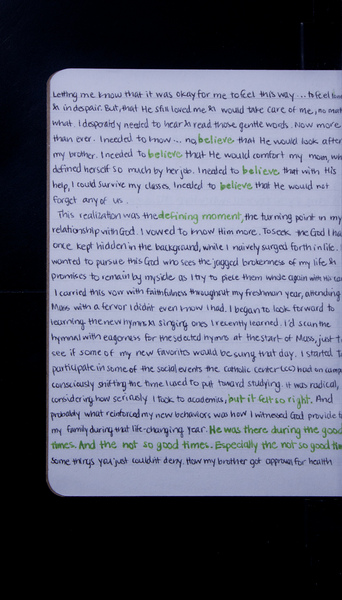 Letting me know that it was okay for me to feel this way... to feel
in despair. But, that He still loved me & would take care of me, no mat
what. I desperately needed to hear & read those gentle words. Now more
than ever. I needed to know... no, believe that He would look after
my brother. I needed to believe that He would comfort my mom, wh
defined herself so much by her job. I needed to believe that with His
help, I could survive my classes. I needed to believe that He would not
forget any of us.
This realization was the defining moment, the turning point in my
relationship with God. I vowed to know Him more. To seek the God I ha
once kept hidden in the background, while I naively surged forth in life. I
wanted to pursue this God who sees the jagged brokenness of my life &
promises to remain by my side as I try to piece them whole again with His
I carried this vow with faithfulness throughout my freshman year, attending
Mass with a fervor I didn't even know I had. I began to look forward to
learning the new hymns & singing ones I recently learned. I'd scan the
hymnal with eagerness for the selected hymns at the start of Mass, just t
see if some of my new favorites would be sung that day. I started t
participate in some of the social events the Catholic Center (CC) had on camp
consciously shifting the time I used to put toward studying. It was radical,
considering how seriously I took to academics, but it felt so right. And
probably what reinforced my new behaviors was how I witnessed God provide f
my family during that life-changing year. He was there during the good
times. And the not so good times. Especially the not so good tim
Some things you just couldn't deny. How my brother got approval for health